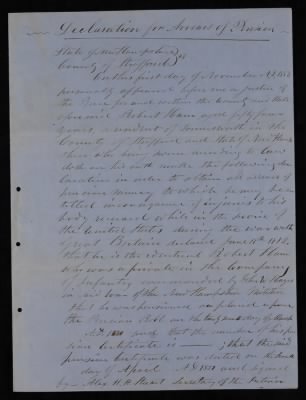 Declaration for Arrears of Pension
State of New Hampshire
County of Strafford ss
On this first day of November AD 185
personally appeared before me a Justice of
the Peace for and within the County and State
aforesaid Robert Ham aged fifty four
years, a resident of Somersworth in the
County of Strafford and State of New Hamp
shire who being sworn according to law
doth on his oath make the following dec
laration in order to obtain all arrears of
pension money to which he may be en
titled in consequence of injuries to his
body received while in the service of
the United States during the war with
Great Britain declared June 18th 1812.
that he is the identical Robert Ham
who was a private in the Company
of Infantry commanded by John W Hayes
in said war of the New Hampshire
that he was placed upon
the Pension Roll on the day of
AD 18 and that the number of his pen
sion Certificate is —— ; that the said
pension Certificate was dated on the
day of April AD 1851 and signed
by Alex. H. H. Stuart Secretary of the Interior